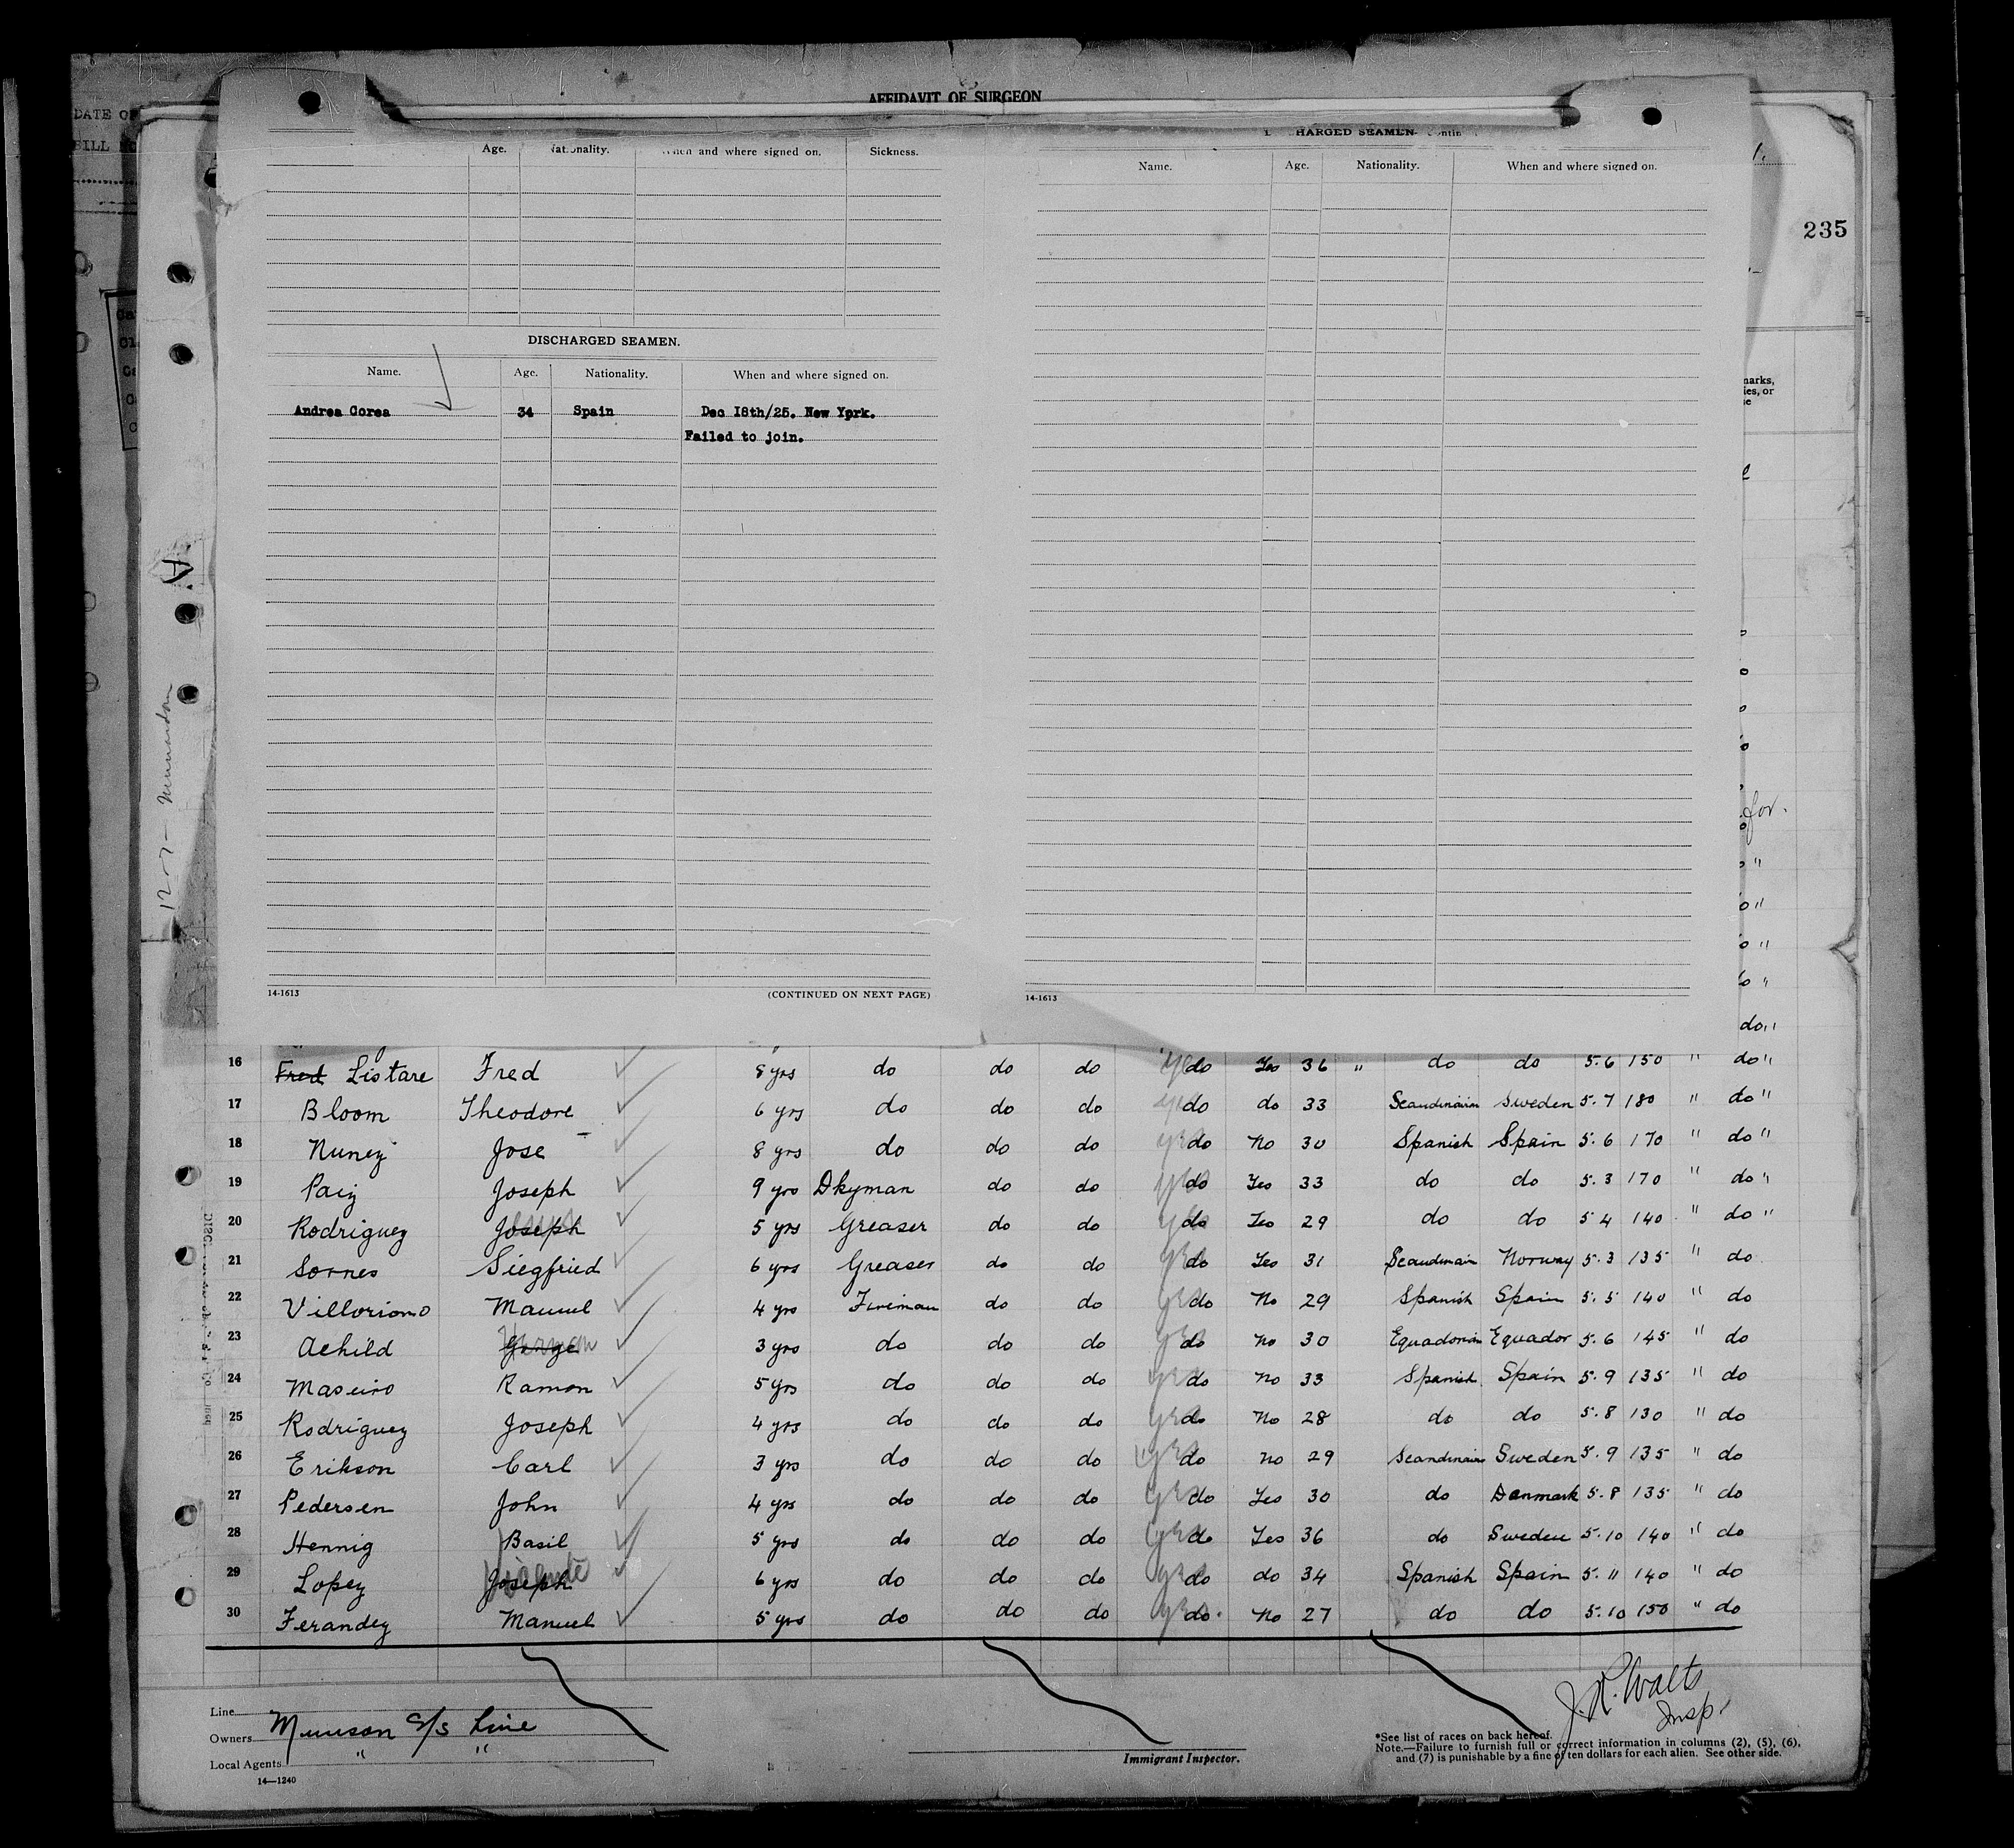 DATE OF
BILL NO
AFFIDAVIT OF SURGEON
Age. Nationality. When and where signed on. Sickness.
DISCHARGED SEAMEN.
Name. Age. Nationality. When and where signed on.
Andrea Corea 34 Spain Dec I8th/25. New Yprk.
Failed to join.
14-1613 (CONTINUED ON NEXT PAGE)
HARGED SEAMEN- Contin
Name. Age. Nationality. When and where signed on.
14-1613
235
marks,
ies, or
e
for.
do "
16 Fred Listare Fred 8 yrs do do do yes do Yes 36 " do do 5.6 150 " do "
17 Bloom Theodore 6 yrs do do do yes do do 33 Scandinavian Sweden 5.7 180 " do "
18 Nunez Jose 8 yrs do do do yes do No 30 Spanish Spain 5.6 170 " do "
19 Paiz Joseph 9 yrs Dkyman do do yes do Yes 33 do do 5.3 170 " do "
20 Rodriguez Joseph 5 yrs Greaser do do yes do Yes 29 do do 5 4 140 " do "
21 Sornes Siegfried 6 yrs Greaser do do yes do Yes 31 Scandinain Norway 5.3 135 " do
22 Villoriomo Manuel 4 yrs Fireman do do yes do No 29 Spanish Spain 5.5 140 " do
23 Achild George 3 yrs do do do yes do No 30 Equadorian Equador 5.6 145 " do
24 Maseiro Ramon 5 yrs do do do yes do No 33 Spanish Spain 5.9 135 " do
25 Rodriguez Joseph 4 yrs do do do yes do No 28 do do 5.8 130 " do
26 Erikson Carl 3 yrs do do do yes do No 29 Scandinain Sweden 5.9 135 " do
27 Pedersen John 4 yrs do do do yes do Yes 30 do Danmark 5.8 135 " do
28 Hennig Basil 5 yrs do do do yes do Yes 36 do Sweden 5.10 140 " do
29 Lopez Joseph 6 yrs do do do yes do do 34 Spanish Spain 5.11 140 " do
30 Ferandez Manuel 5 yrs do do do yes do. No 27 do do 5.10 150 " do
Line
Owners Munson S/S Line
Local Agents " "
14—1240
Immigrant Inspector.
J.R. Walts
Insp.
*See list of races on back hereof.
Note.—Failure to furnish full or correct information in columns (2), (5), (6),
and (7) is punishable by a fine of ten dollars for each alien. See other side.